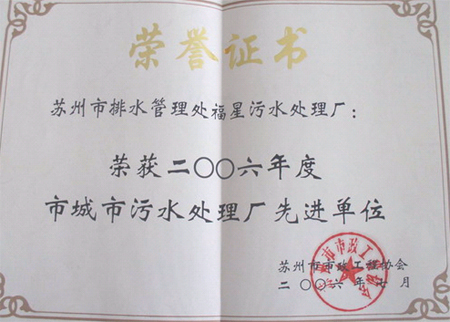 荣誉证书
苏州市排水管理处福星污水处理厂：
荣获二〇〇六年度
市城市污水处理厂先进单位
苏州市市政工程协会
二〇〇六年 月